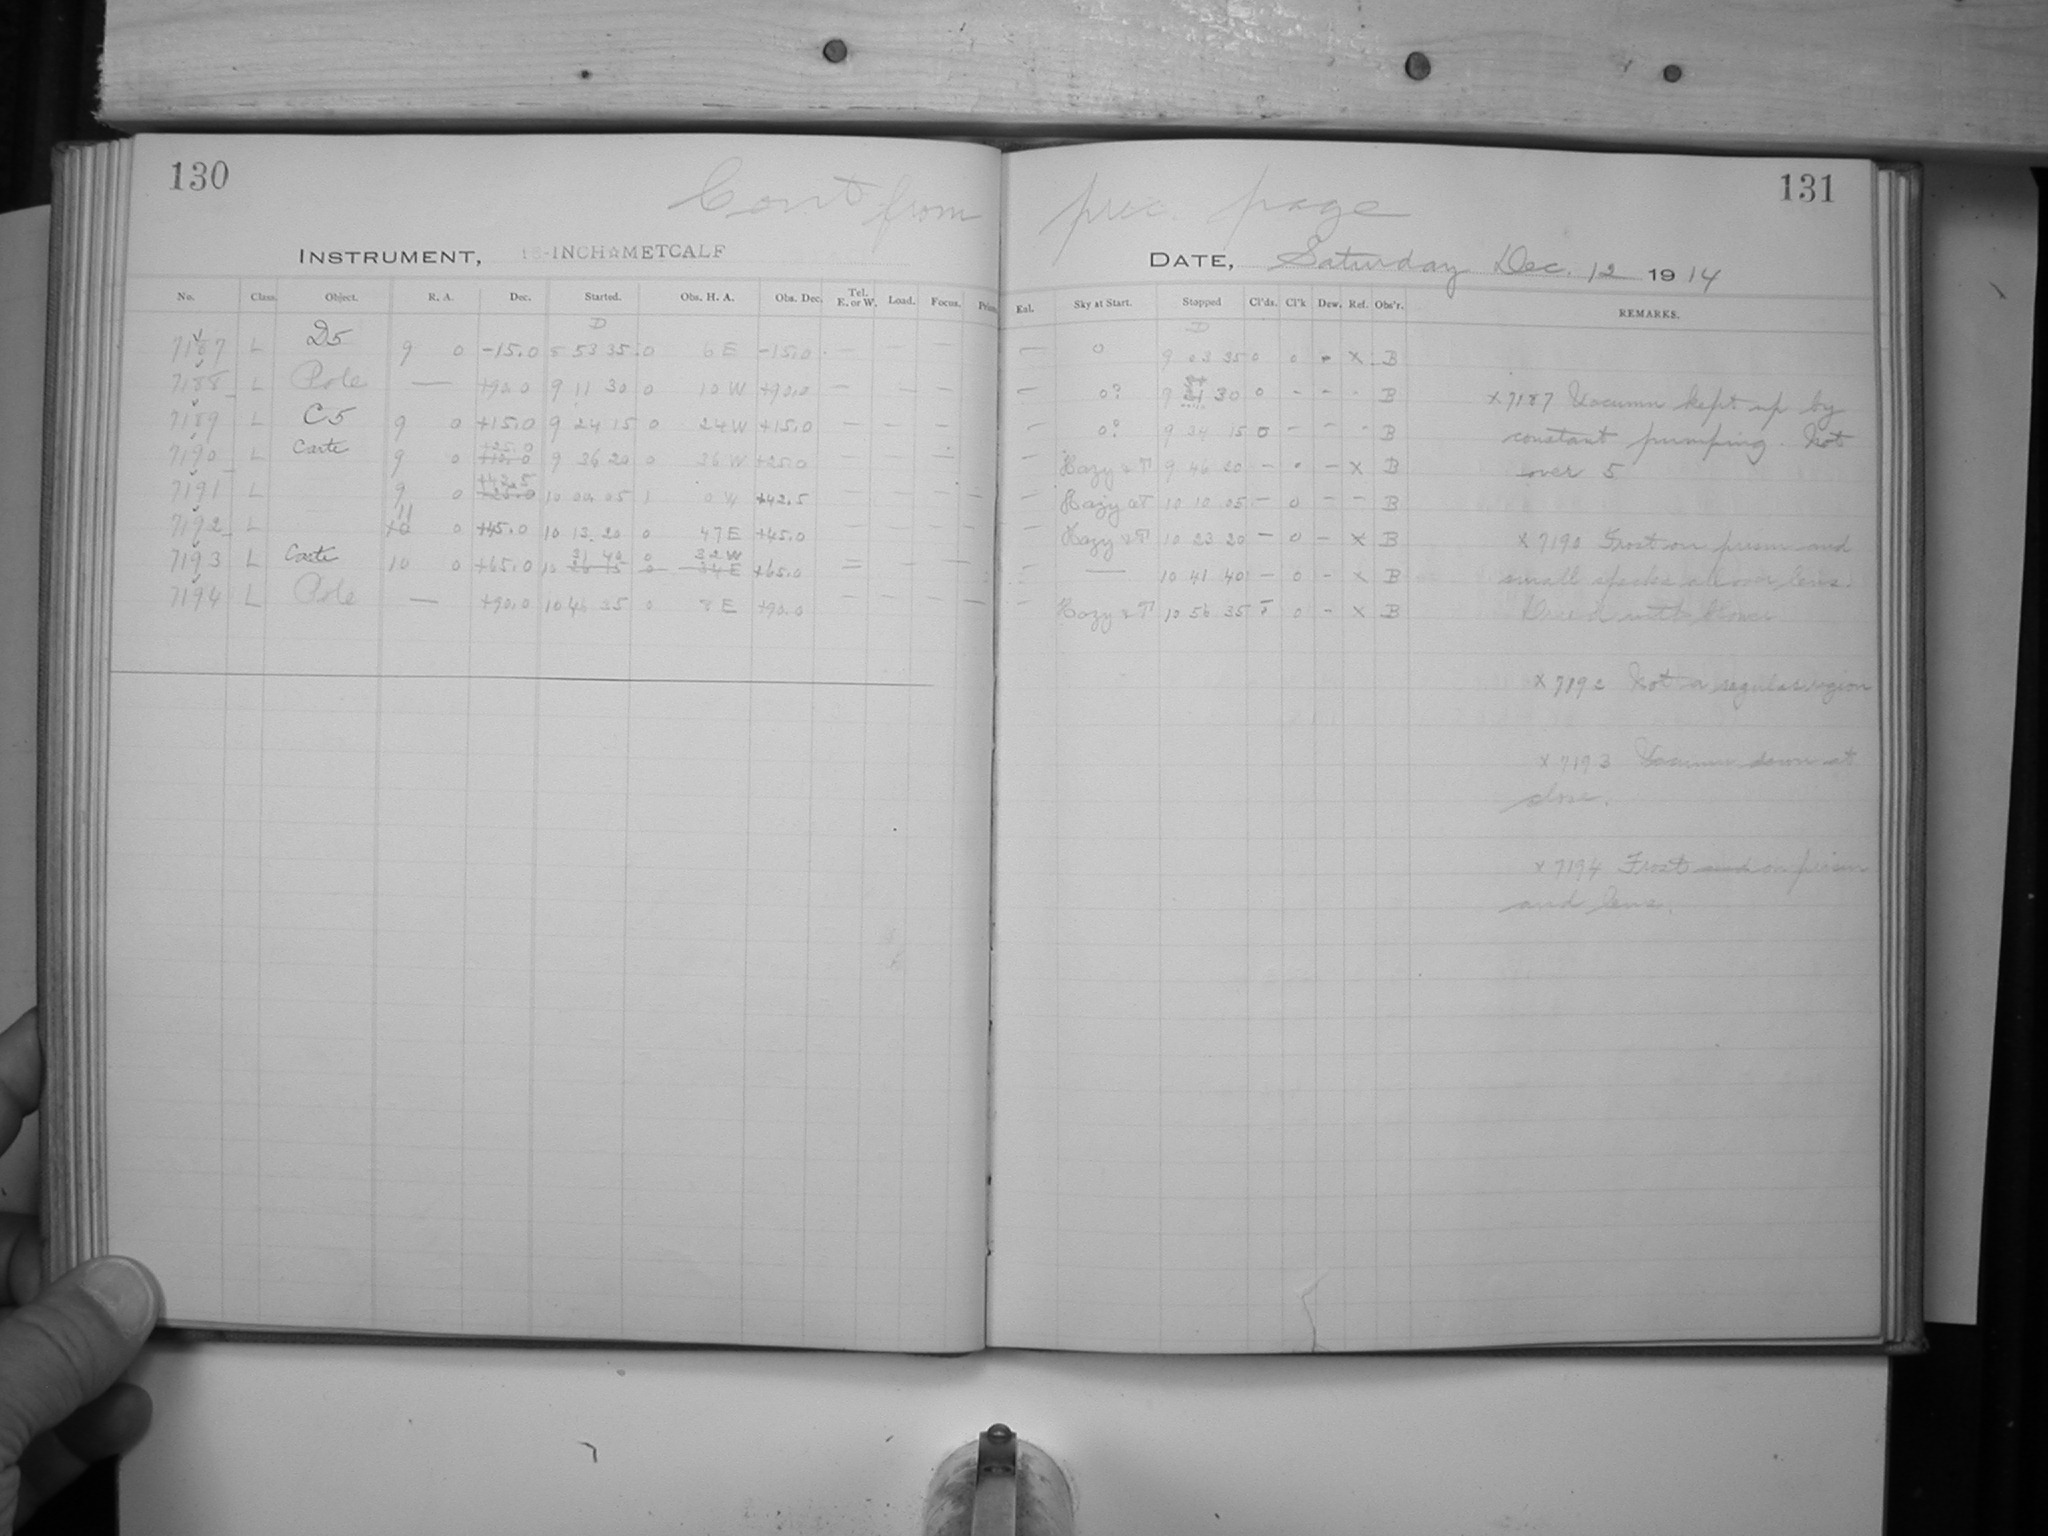 130
Cont from prec. page
131
INSTRUMENT, 16-INCH☆METCALF
DATE, Saturday Dec. 12 1914
No. Class. Object. R. A. Dec. Started. Obs. H. A. Obs. Dec. Tel. E. or W. Load. Focus. Prism.
Eal. Sky at Start. Stopped Cl'ds. Cl'k Dew. Ref. Obs'r. REMARKS.
D
D
7187 L D5 9 0 -15.0 8 53 35 0 6 E -15.0 — — — —
— 0 9 03 35 0 0 x B
7188 L Pole — +90.0 9 11 30 0 10 W +90.0 — — — —
— 0? 9 21 30 0 - - - B
7189 L C5 9 0 +15.0 9 24 15 0 24 W +15.0 — — — —
— 0? 9 34 15 0 - - - B
7190 L Carte 9 0 +25.0 9 36 20 0 36 W +25.0 — — —
— Hazy & T 9 46 20 - - x B
7191 L 9 0 +42.5 10 00 05 1 0 W +42.5 — — — —
— Hazy & T 10 10 05 - 0 - - B
7192 L 11 0 +45.0 10 13 20 0 47 E +45.0 — — — —
— Hazy & T 10 23 20 - 0 - x B
7193 L Carte 10 0 +65.0 10 31 40 0 32 W +65.0 — — —
10 26 15 0 34 E
— 10 41 40 - 0 - x B
7194 L Pole — +90.0 10 46 35 0 8 E +90.0 — — — —
— Hazy & T 10 56 35 0 - x B
x 7187 Vacumn kept up by
constant pumping. Not
over 5
x 7190 Frost on prism and
small specks all over lens.
Dried with
x 7192 Not a regular region
x 7193 Vacumn down at
close.
x 7194 Frost and on prism
and lens.